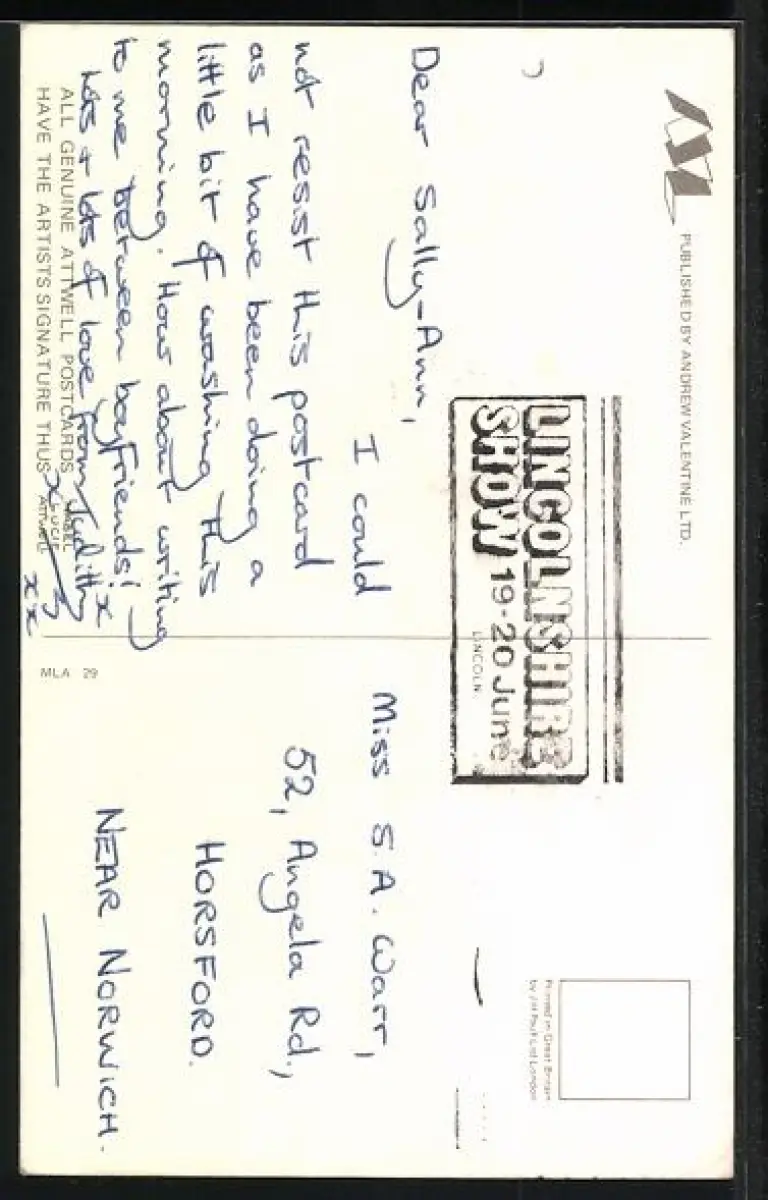 PUBLISHED BY ANDREW VALENTINE LTD.
LINCOLNSHIRE
SHOW 19-20 June
LINCOLN.
Dear Sally-Ann,
I could
not resist this postcard
as I have been doing a
little bit of washing this
morning. How about writing
to me between boyfriends!
Lots + lots of love from Judith
x x x x
ALL GENUINE ATTWELL POSTCARDS
HAVE THE ARTISTS SIGNATURE THUS
MABEL
LUCIE
ATTWELL
MLA 29
Printed in Great Britain
Miss S.A. Warr,
52, Angela Rd.,
HORSFORD.
NEAR NORWICH.